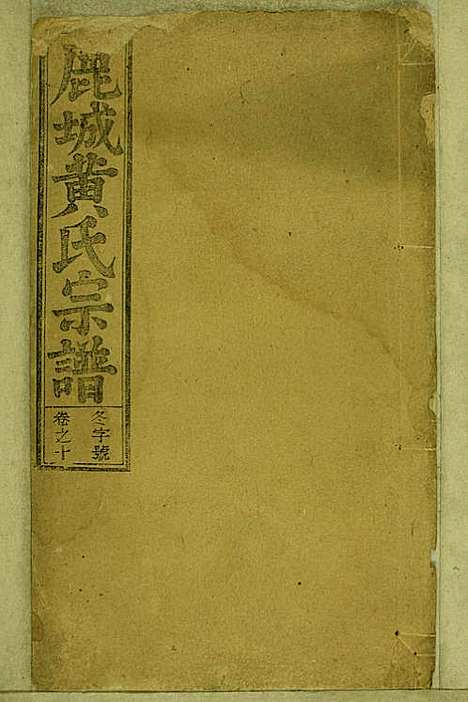 鹿城黄氏宗譜
冬字號
卷之十